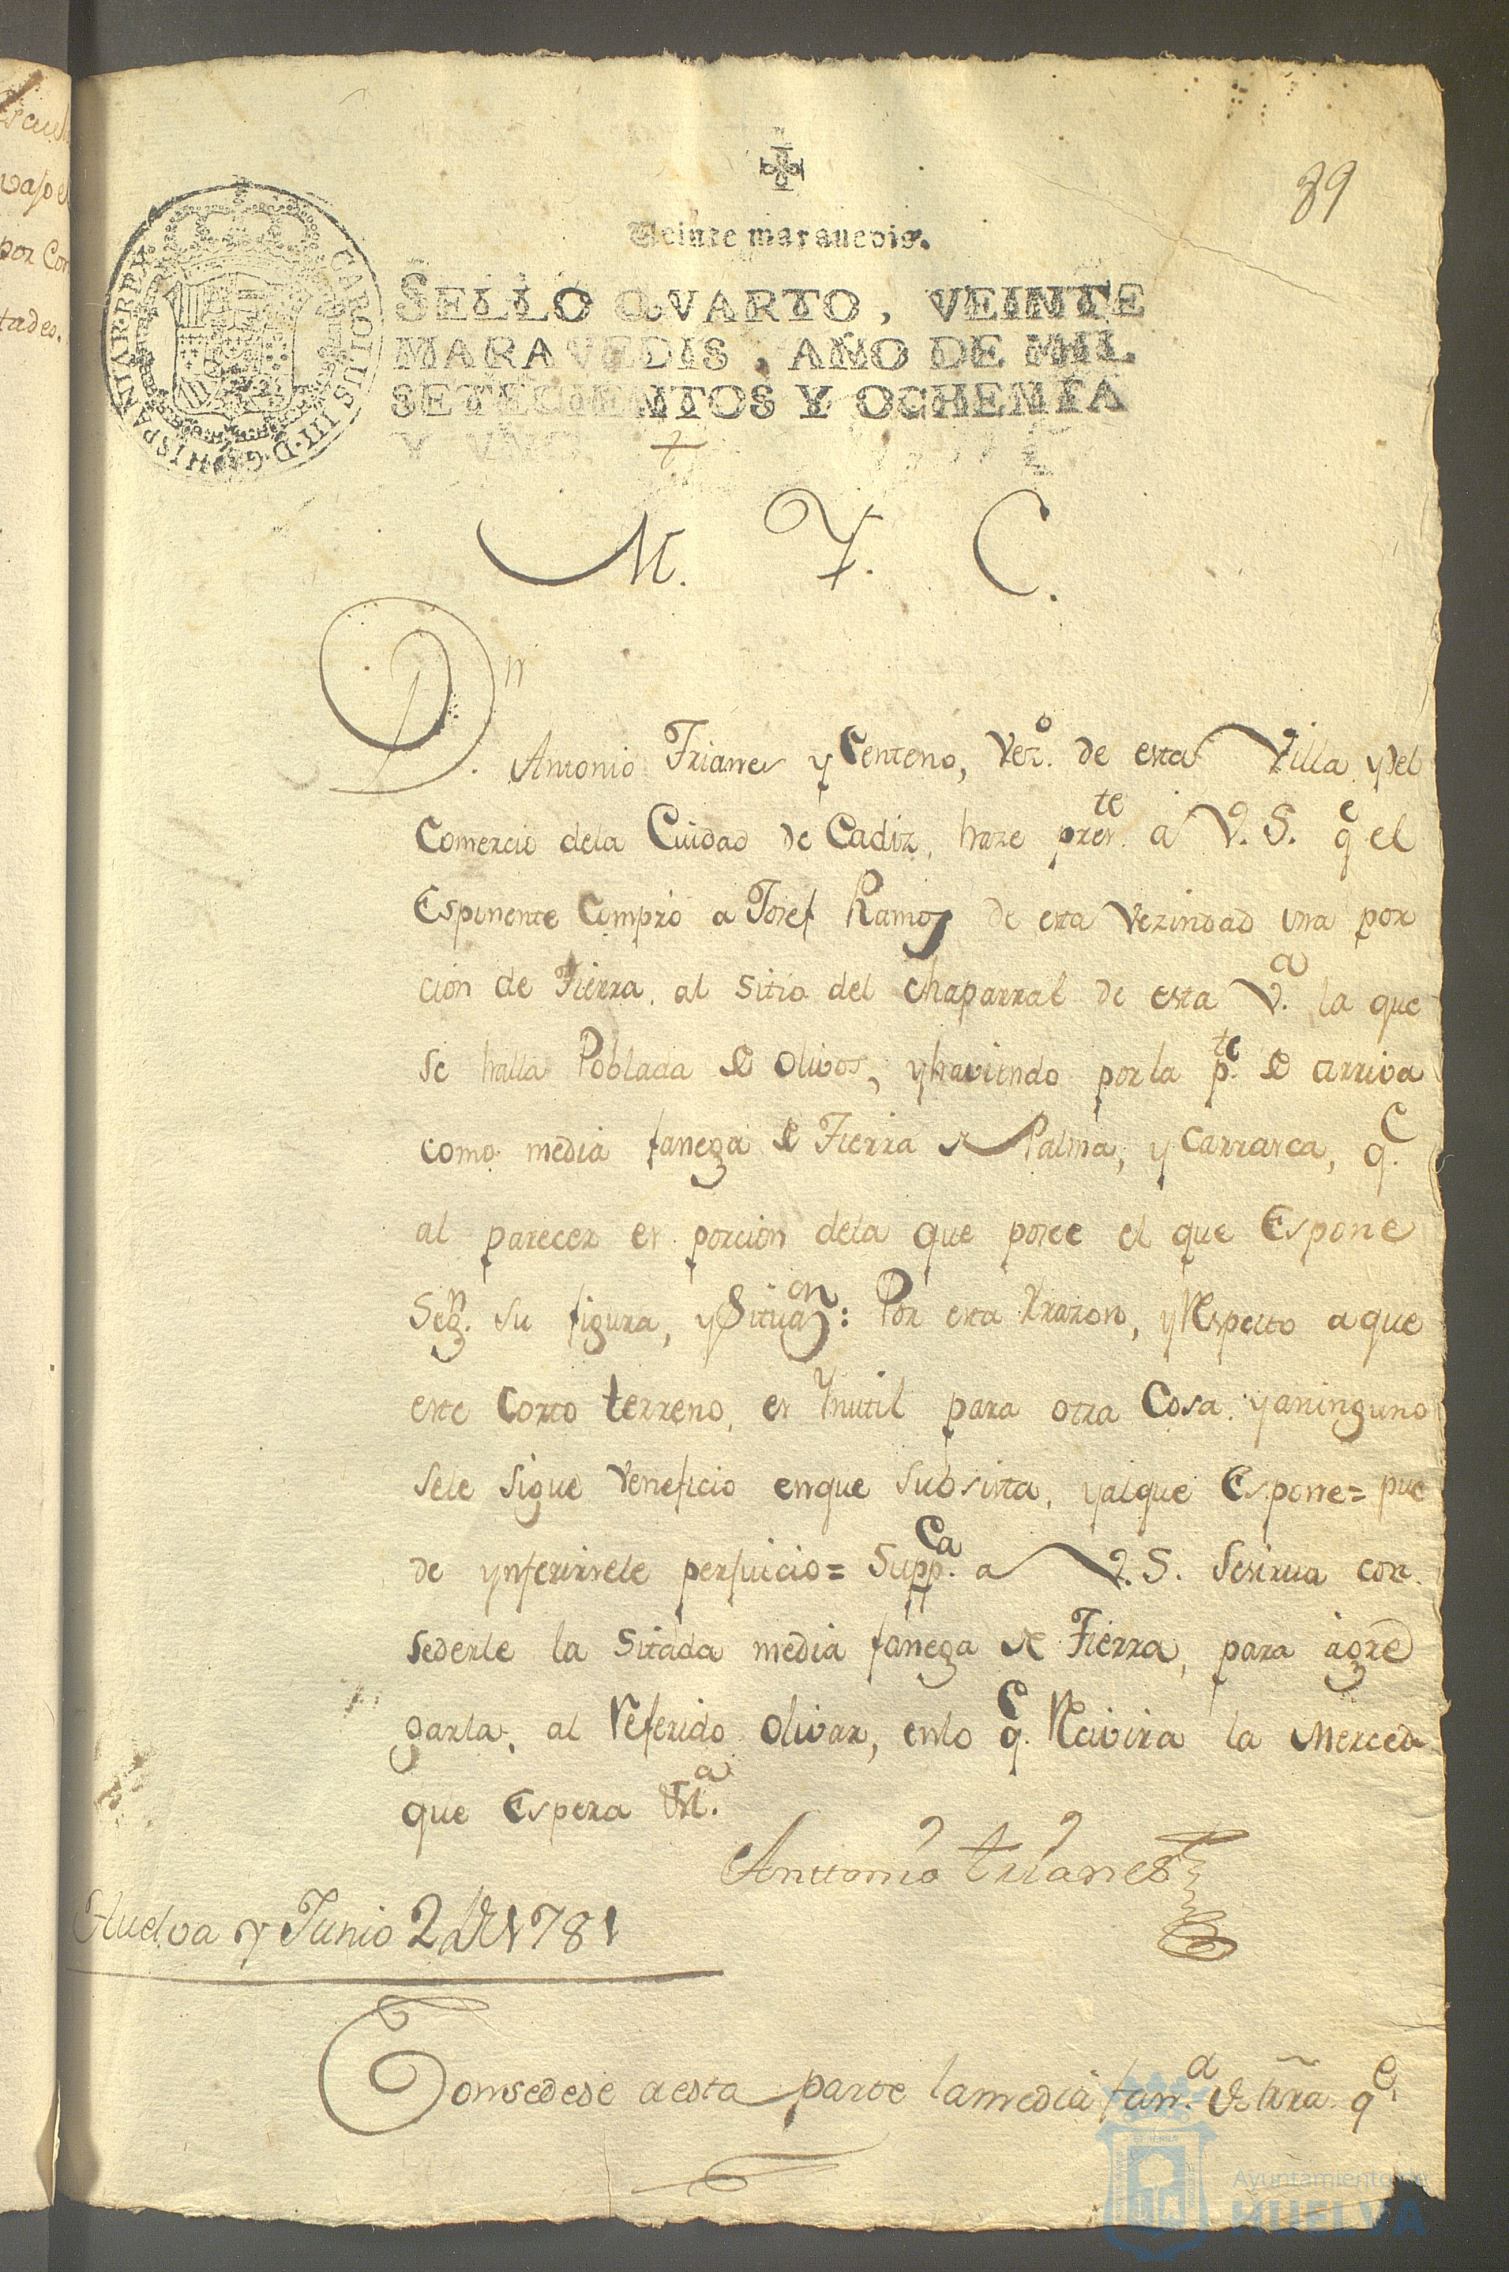 39
Veinte marauedis.
SELLO QVARTO, VEINTE
MARAVEDIS, AÑO DE MIL
SETECIENTOS Y OCHENTA
Y VNO.
CAROLUS·III·D·G·HISPANIAR·REX
M. Y. C.
Dn.
Antonio Trianes y Centeno, Vezo. de esta Villa, y del
Comercio dela Ciudad de Cadiz, haze preste. a V. S. qe el
Esponente Compró a Josef Ramos de esta Vezindad una por
cion de Tierra, al Sitio del Chaparral de esta Va. la que
se halla Poblada de Olivos, yhaviendo porla pte. de arriva
como media fanega de Tierra de Palma, y Carrasca, qe.
al parecer es porcion dela que posee el que Espone
Segn. su figura, ySituaon: Por esta Rrazon, yRespecto aque
este Corto terreno, es Ynutil para otra Cosa, yaninguno
sele sigue Veneficio enque subsista, yalque Espone= pue
de ynferirsele perjuicio= Suppca. a V. S. Sesirva con
sederle la Sitada media fanega de Tierra, para agre
garla, al Referido Olivar, enlo qe. Recivira la Merced
que Espera &a.
Anttonio trianes
Huelva y Junio 2 de 1781
Consedese aesta parte lamedia fana. de trra. qe.
escu
vajo e
por Con
tades.
Ayuntamiento de
HUELVA